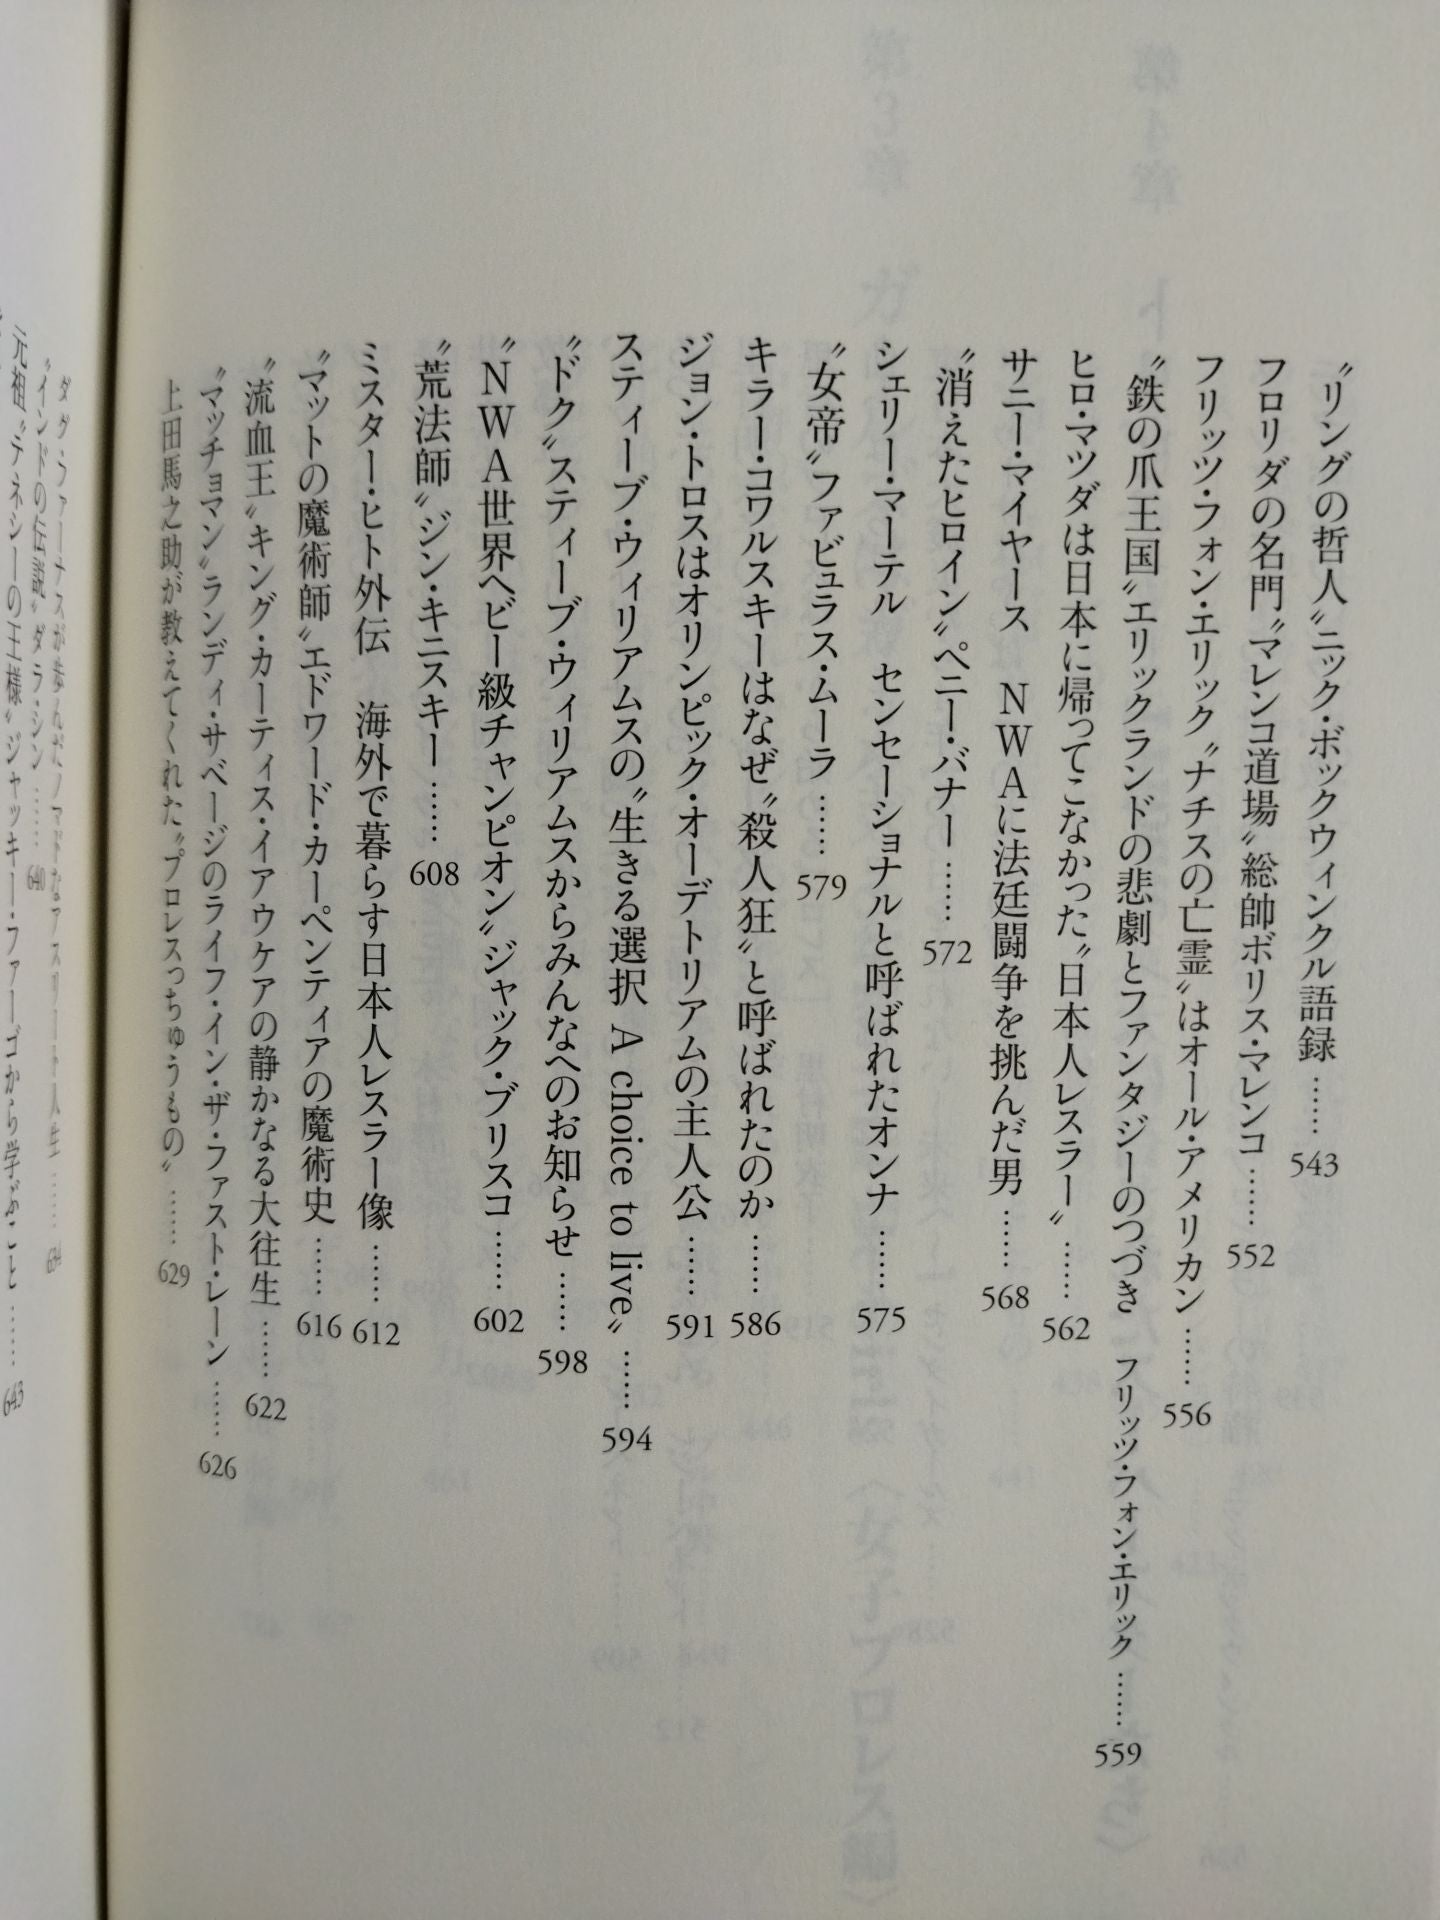 〝リングの哲人〟ニック・ボックウィンクル語録……543
フロリダの名門〝マレンコ道場〟総帥ボリス・マレンコ……552
フリッツ・フォン・エリック〝ナチスの亡霊〟はオール・アメリカン……556
〝鉄の爪王国〟エリックランドの悲劇とファンタジーのつづき　フリッツ・フォン・エリック……559
ヒロ・マツダは日本に帰ってこなかった〝日本人レスラー〟……562
サニー・マイヤース　NWAに法廷闘争を挑んだ男……568
〝消えたヒロイン〟ペニー・バナー……572
シェリー・マーテル　センセーショナルと呼ばれたオンナ……575
〝女帝〟ファビュラス・ムーラ……579
キラー・コワルスキーはなぜ〝殺人狂〟と呼ばれたのか……586
ジョン・トロスはオリンピック・オーデトリアムの主人公……591
スティーブ・ウィリアムスの〝生きる選択 A choice to live〟……594
〝ドク〟スティーブ・ウィリアムスからみんなへのお知らせ……598
〝NWA世界ヘビー級チャンピオン〟ジャック・ブリスコ……602
〝荒法師〟ジン・キニスキー……608
ミスター・ヒト外伝　海外で暮らす日本人レスラー像……612
〝マットの魔術師〟エドワード・カーペンティアの魔術史……616
〝流血王〟キング・カーティス・イアウケアの静かなる大往生……622
〝マッチョマン〟ランディ・サベージのライフ・イン・ザ・ファスト・レーン……626
上田馬之助が教えてくれた〝プロレスっちゅうもの〟……629
ダグ・ファーナスが歩んだノマドなアスリート人生……634
〝インドの伝説〟ダラ・シン……640
元祖〝テネシーの王様〟ジャッキー・ファーゴから学ぶこと……643